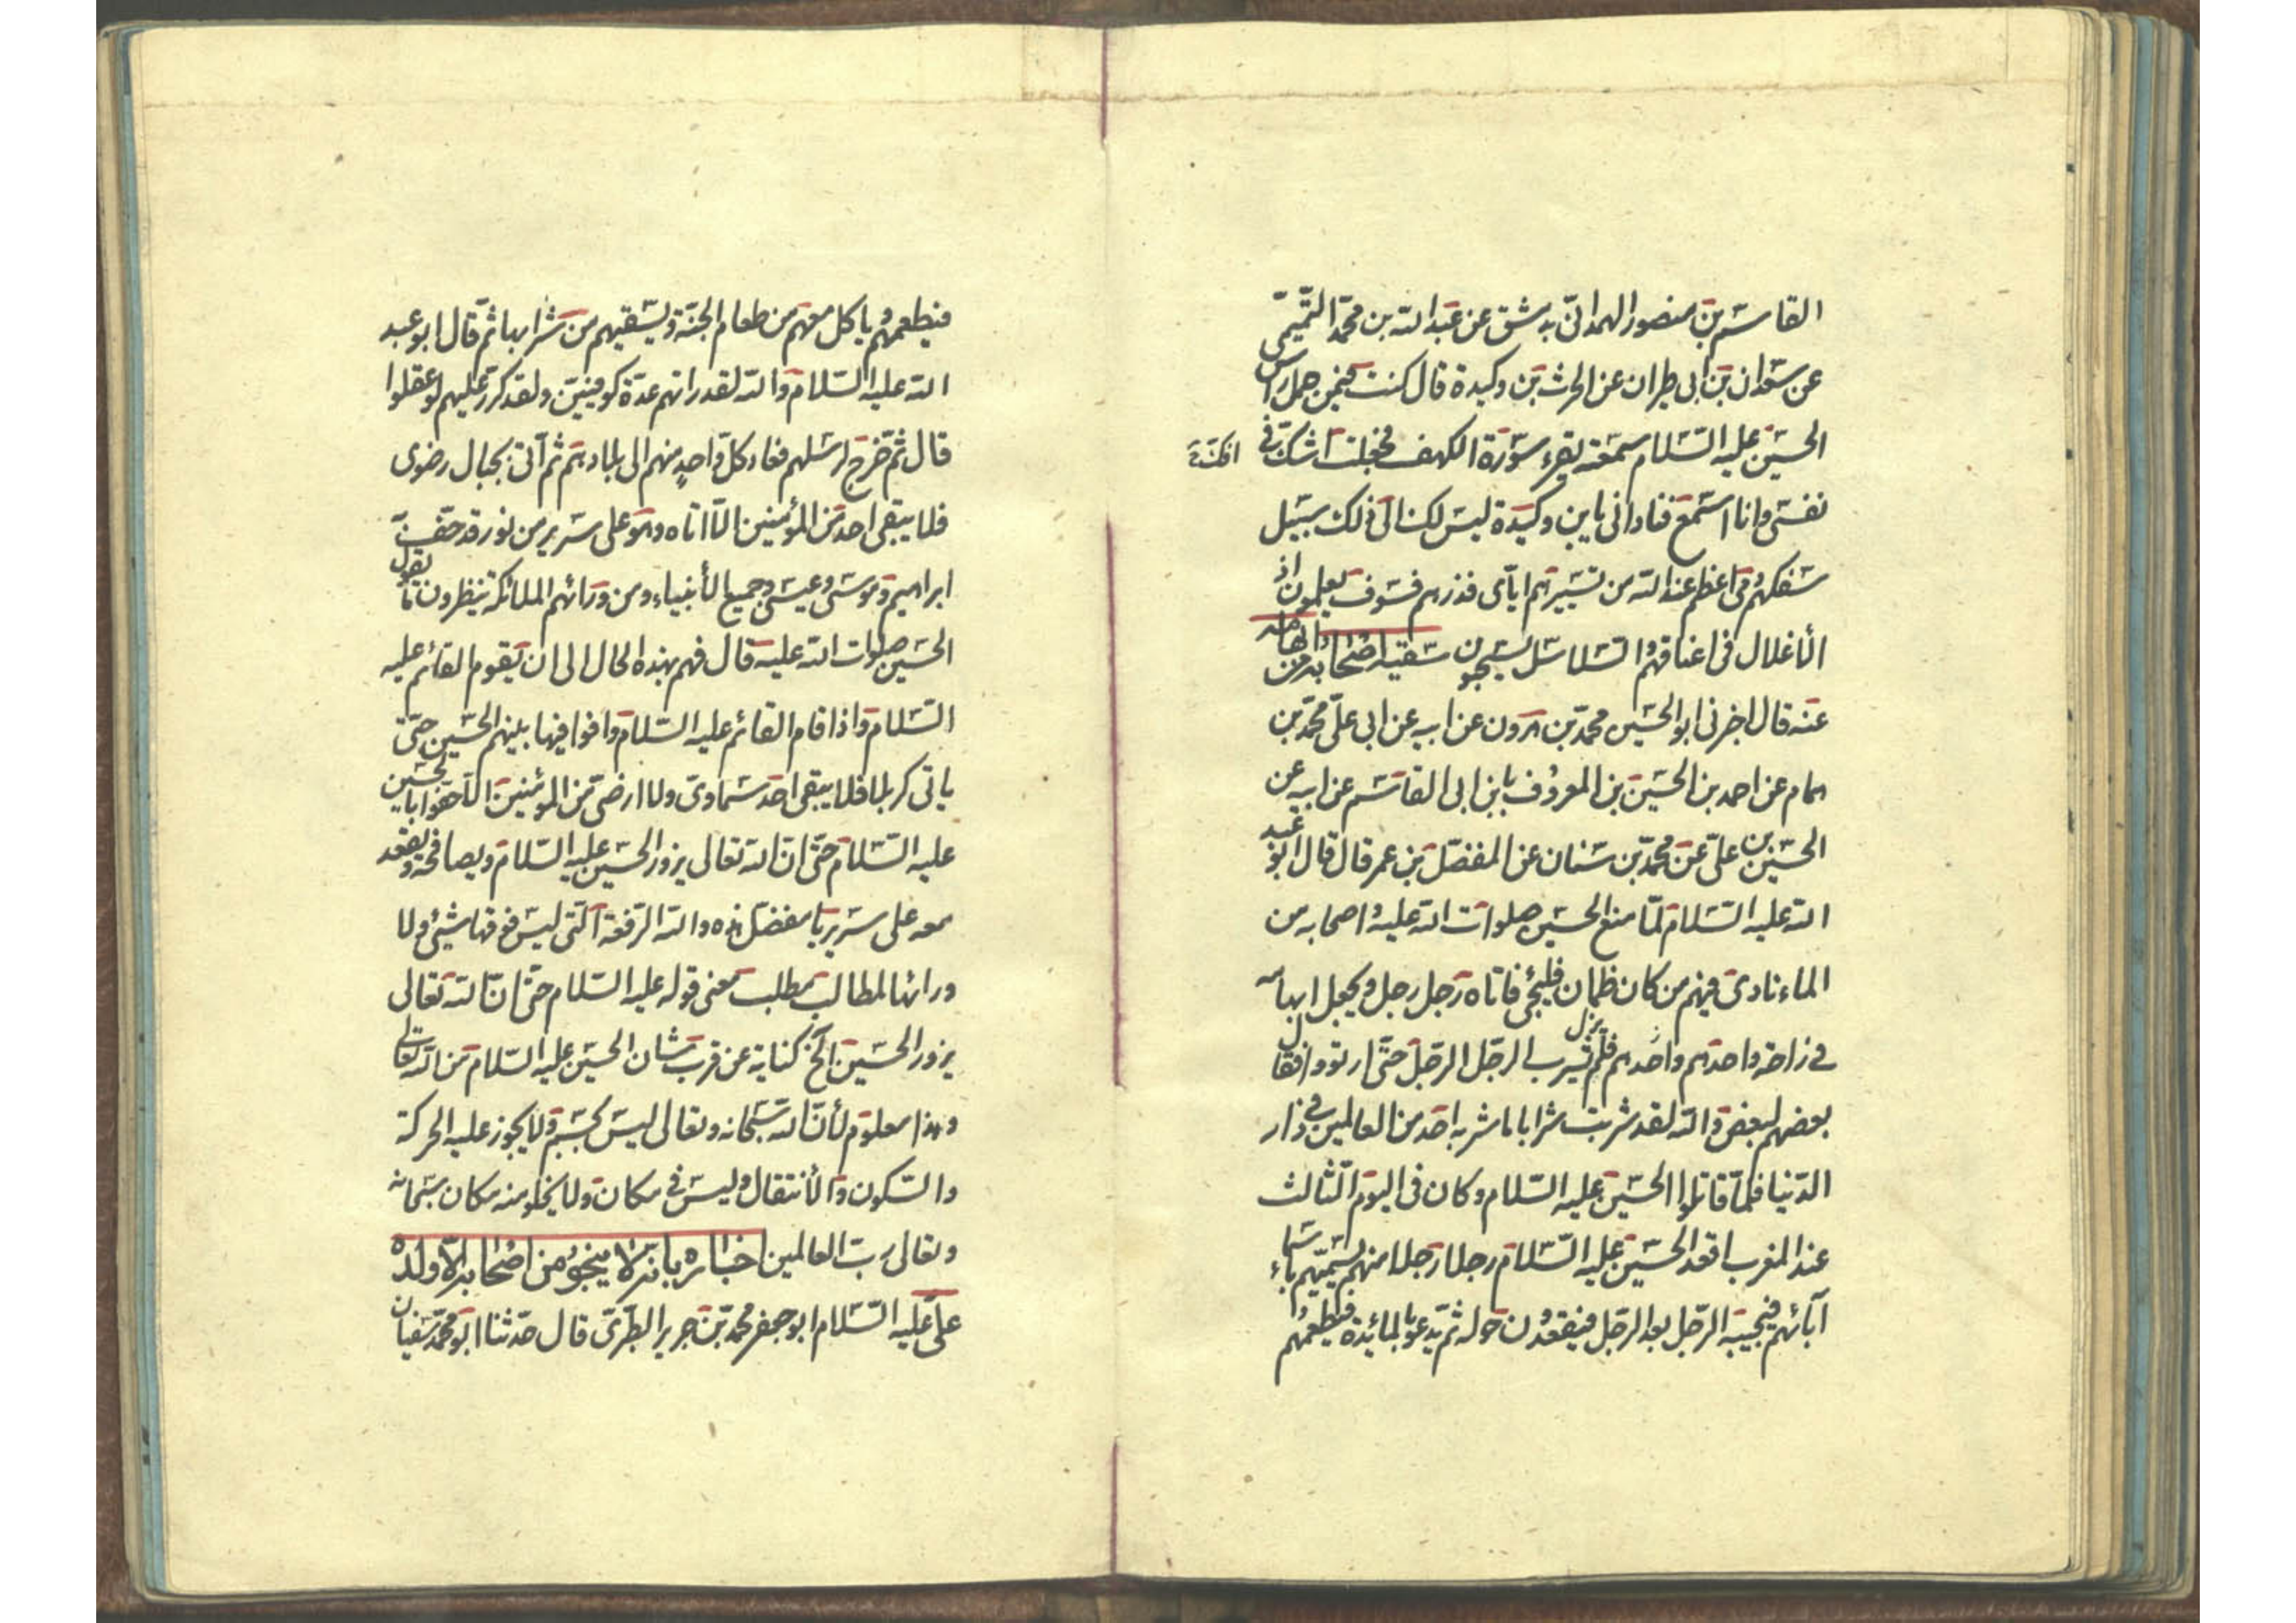 القاسم بن منصور الهمداني بدمشق عن عبد الله بن محمد التميمي
عن سعدان بن ابي طيران عن الحرث بن وكيدة قال كنت فيمن حمل راس
الحسين عليه السلام سمعته يقرء سورة الكهف فجعلت اشك في
نفسي وانا استمع فناداني يابن وكيدة ليس لك الى ذلك سبيل
سفكهم دمي اعظم عند الله من تسييرهم اياي فذرهم فسوف يعلمون اذ
الأغلال في اعناقهم والسلاسل يسحبون سقيه اصحابه من
عنه قال اخبرني ابو الحسين محمد بن هرون عن ابيه عن ابي علي محمد بن
همام عن احمد بن الحسين بن المعروف بابن ابي القاسم عن ابيه عن
الحسين بن علي عن محمد بن سنان عن المفضل بن عمر قال قال ابو عبد
الله عليه السلام لما منع الحسين صلوات الله عليه واصحابه من
الماء نادى فيهم من كان ظمان فليجئ فاتاه رجل رجل ويجعل ابهامه
في راحة واحدهم واحدهم فلم يزل يشرب الرجل الرجل حتى ارتووا فقال
بعضهم لبعض والله لقد شربت شرابا ما شربه احد من العالمين في دار
الدنيا فلما قاتلوا الحسين عليه السلام وكان في اليوم الثالث
عند المغرب اقعد الحسين عليه السلام رجلا رجلا منهم يسميهم باسماء
آبائهم فيجيبه الرجل بعد الرجل فيقعدون حوله ثم يدعو بالمائدة فيطعمهم
فيطعمهم وياكل معهم من طعام الجنة ويسقيهم من شرابها ثم قال ابو عبد
الله عليه السلام والله لقد راتهم عدة كوفيين ولقد كرر عليهم لو عقلوا
قال ثم خرج لرسلهم فعاد كل واحد منهم الى بلادهم ثم آتى بجبال رضوى
فلا يبقى احد من المؤمنين الا اتاه وهو على سرير من نور قد حف به
ابراهيم وموسى وعيسى وجميع الأنبياء ومن ورائهم الملائكة ينظرون ما يقول
الحسين صلوات الله عليه قال فهم بهذه الحال الى ان يقوم القائم عليه
السلام واذا قام القائم عليه السلام وافوا فيها بينهم الحسين حتى
ياتي كربلا فلا يبقى احد سماوي ولا ارضي من المؤمنين الا حفوا بالحسين
عليه السلام حتى ان الله تعالى يزور الحسين عليه السلام ويصافحه ويقعد
معه على سرير يا مفضل هذه والله الرفعة التي ليس فوقها شيئ ولا
ورائها لمطالب مطلب معنى قوله عليه السلام حتى ان الله تعالى
يزور الحسين الخ كناية عن قرب شان الحسين عليه السلام من الله تعالى
وهذا معلوم لأن الله سبحانه وتعالى ليس بجسم ولا يجوز عليه الحركة
والسكون والأنتقال وليس في مكان ولا يخلو منه مكان سبحانه
وتعالى رب العالمين اخباره بانه لا ينجو من اصحابه الا ولده
علي عليه السلام ابو جعفر محمد بن جرير الطبري قال حدثنا ابو محمد سفيان